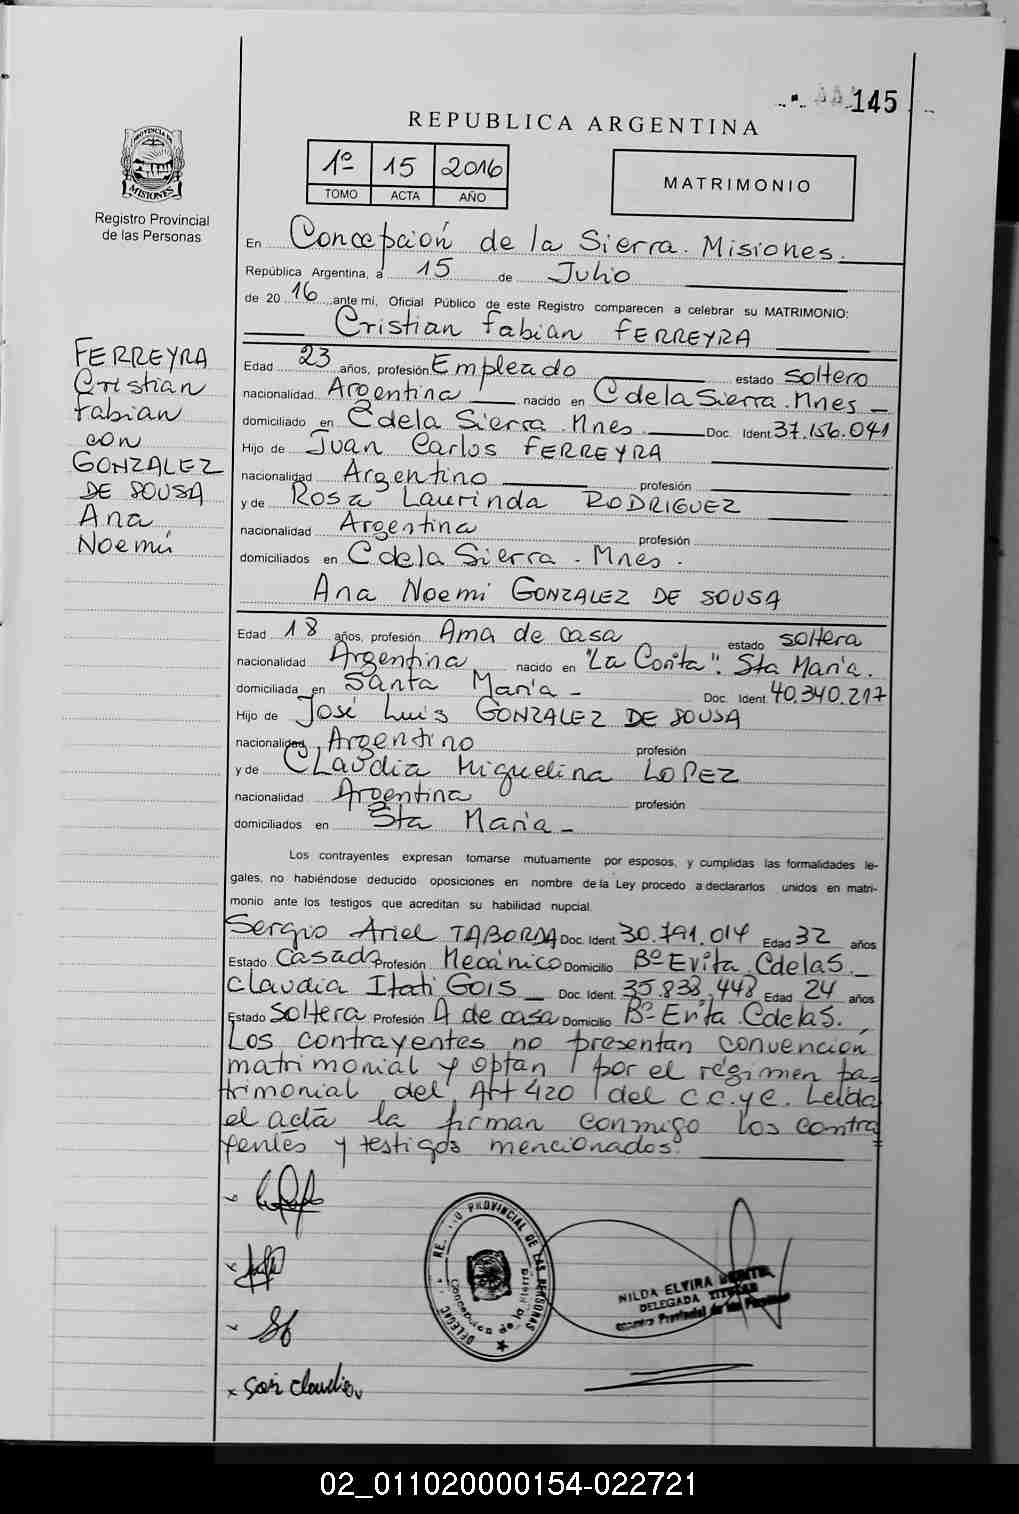 145
REPUBLICA ARGENTINA
PROVINCIA DE
MISIONES
Registro Provincial
de las Personas
1º 15 2016
TOMO ACTA AÑO
MATRIMONIO
En Concepción de la Sierra. Misiones.
República Argentina, a 15 de Julio
de 20 16 ante mi, Oficial Público de este Registro comparecen a celebrar su MATRIMONIO:
Cristian Fabian FERREYRA
FERREYRA
Cristian
Fabian
con
GONZALEZ
DE SOUSA
Ana
Noemí
Edad 23 años, profesión Empleado estado soltero
nacionalidad Argentina nacido en C de la Sierra. Mnes
domiciliado en C de la Sierra. Mnes. Doc. Ident 37.156.041
Hijo de Juan Carlos FERREYRA
nacionalidad Argentino profesión
y de Rosa Laurinda RODRIGUEZ
nacionalidad Argentina profesión
domiciliados en C de la Sierra. Mnes.
Ana Noemi GONZALEZ DE SOUSA
Edad 18 años, profesión Ama de casa estado soltera
nacionalidad Argentina nacido en "La Corita". Sta María.
domiciliada en Santa María - Doc. Ident. 40.340.217
Hijo de José Luis GONZALEZ DE SOUSA
nacionalidad Argentino profesión
y de Claudia Miguelina LOPEZ
nacionalidad Argentina profesión
domiciliados en Sta María -
Los contrayentes expresan tomarse mutuamente por esposos, y cumplidas las formalidades le-
gales, no habiéndose deducido oposiciones en nombre de la Ley procedo a declararlos unidos en matri-
monio ante los testigos que acreditan su habilidad nupcial.
Sergio Ariel TABORDA Doc. Ident. 30.791.014 Edad 32 años
Estado Casado Profesión Mecánico Domicilio Bº Evita. C de la S.
Claudia Itati GOIS Doc. Ident. 35.838.448 Edad 24 años
Estado Soltera Profesión A de casa Domicilio Bº Evita. C de la S.
Los contrayentes no presentan convención
matrimonial y optan por el régimen pa-
trimonial del Art 420 del C.C.y C. Leída
el acta la firman conmigo los contra
yentes y testigos mencionados.
PROVINCIAL DE LAS PERSONAS
DELEGAC
Concepción de la Sierra
NILDA ELVIRA
DELEGADA TITULAR
Registro Provincial de las Personas
Gois Claudia
02_011020000154-022721